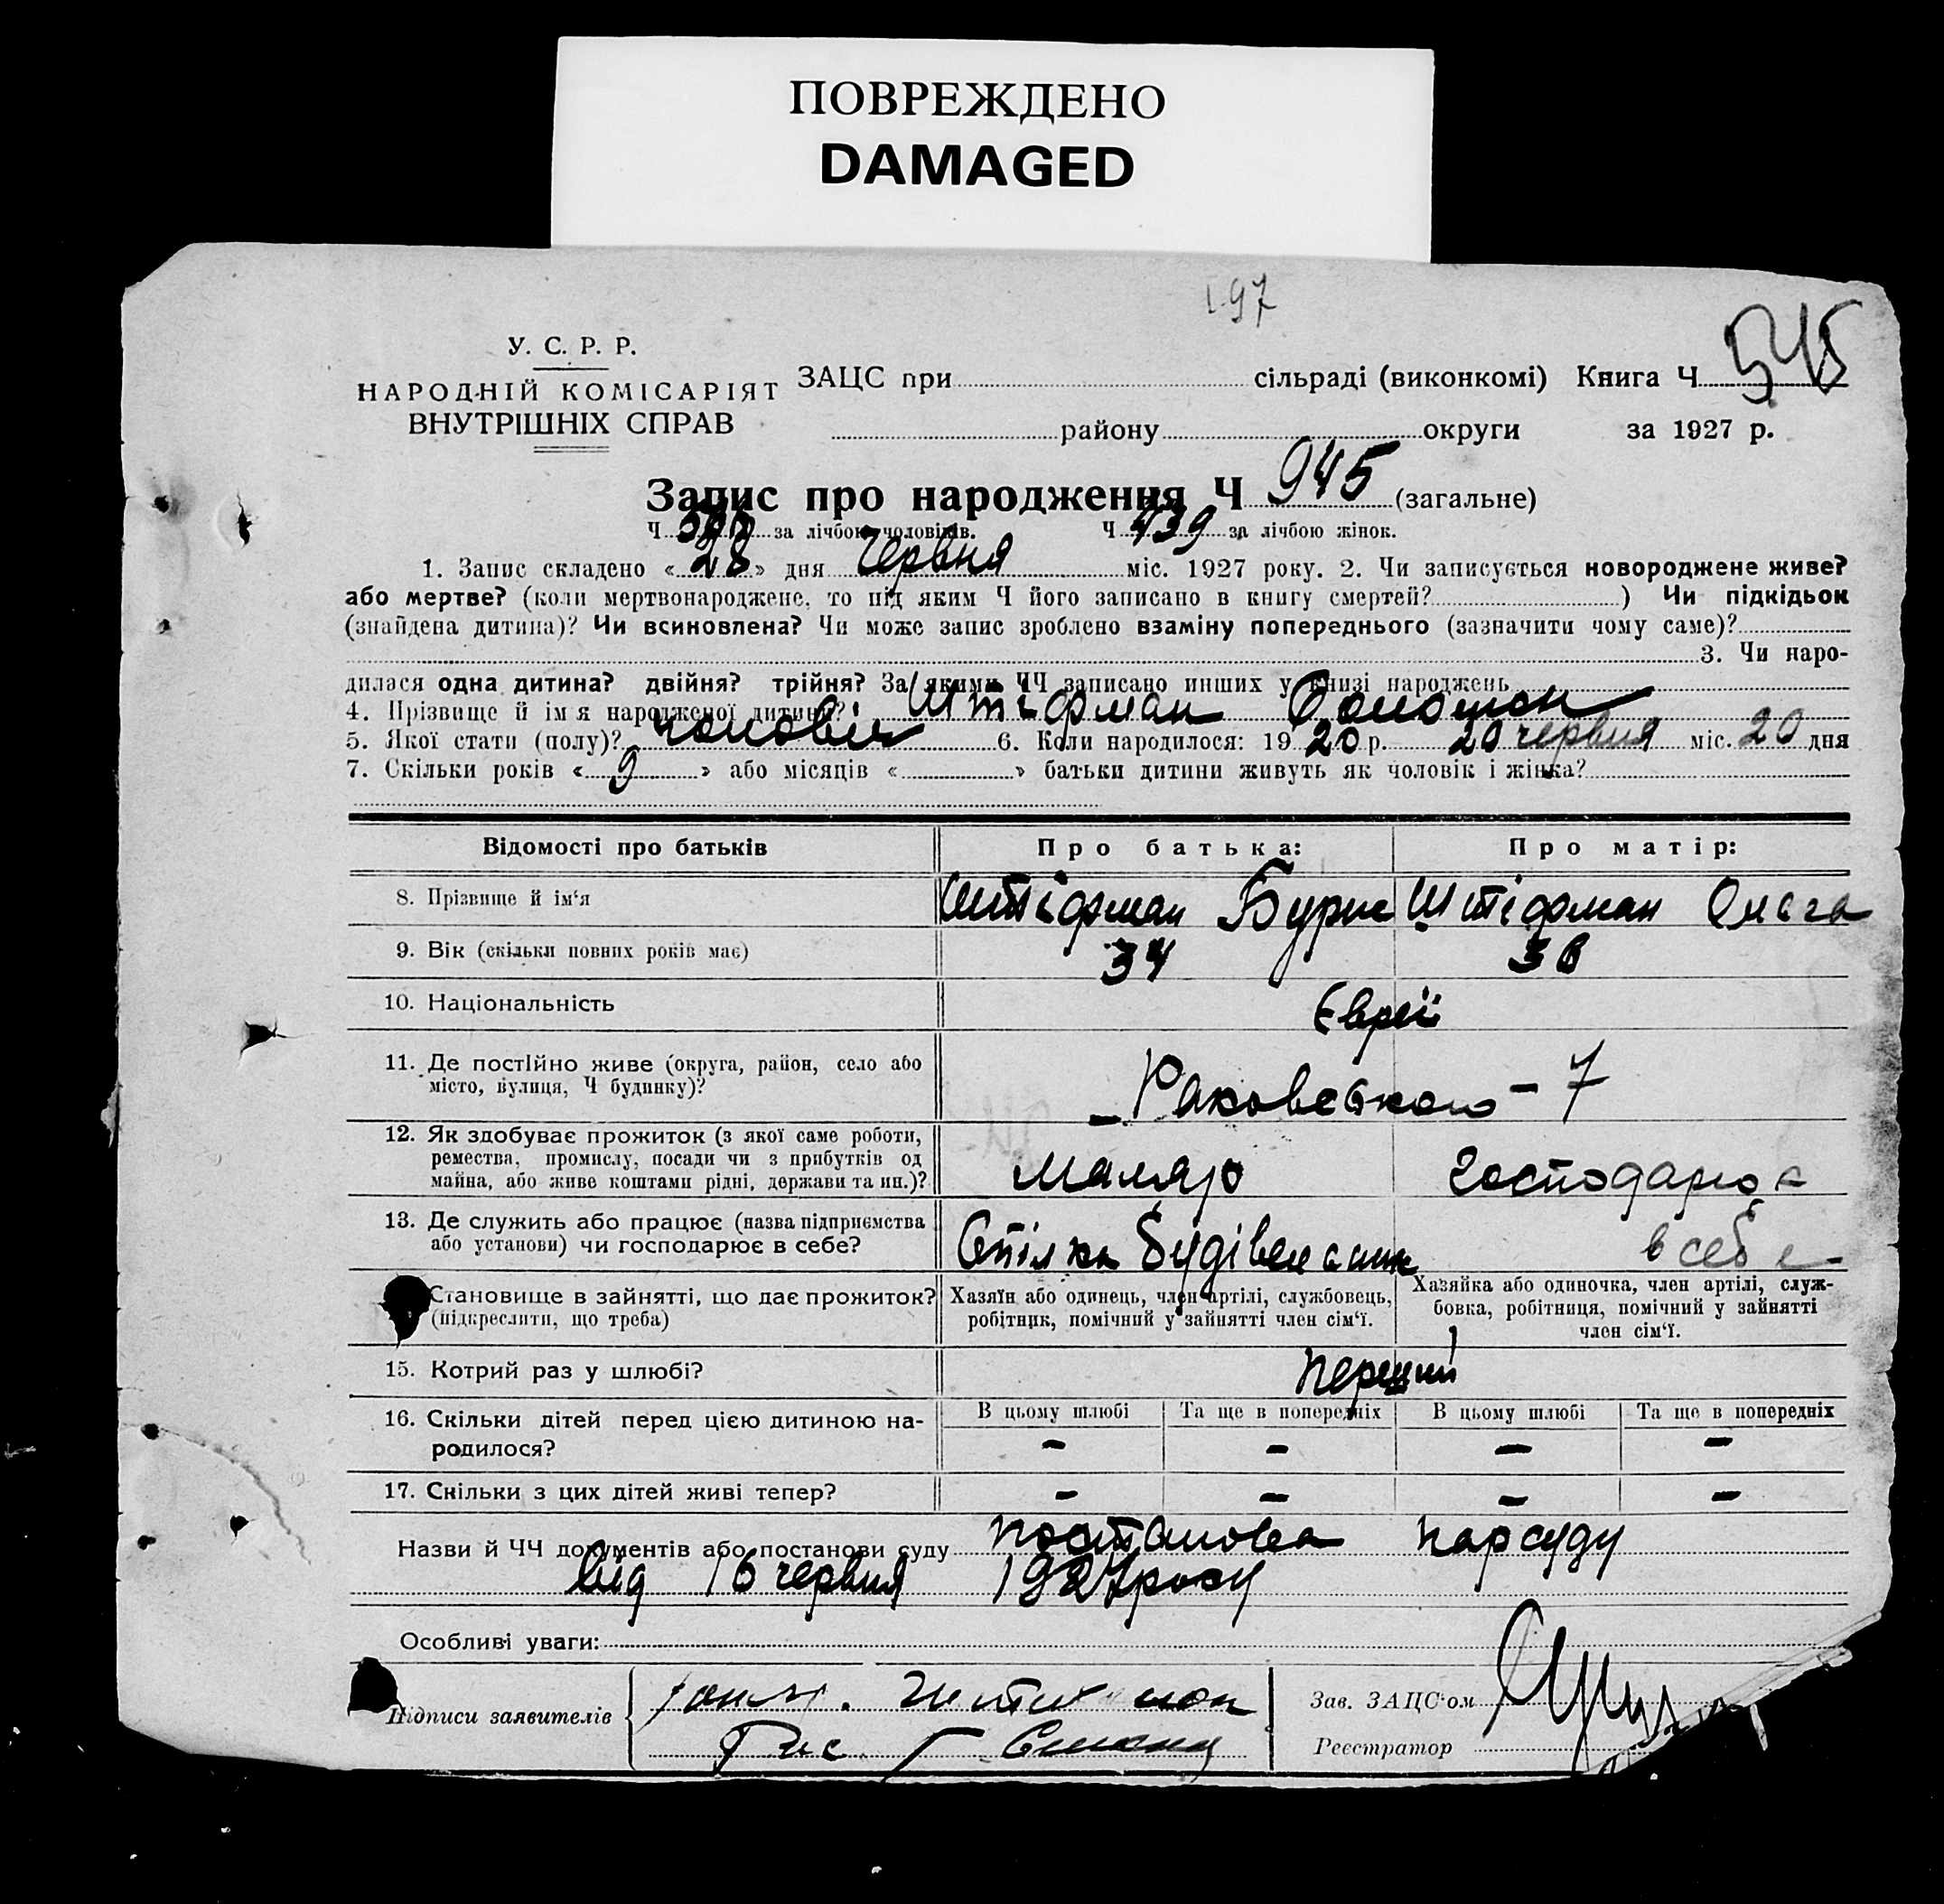 ПОВРЕЖДЕНО
DAMAGED
197
545
У. С. Р. Р.
НАРОДНІЙ КОМІСАРІЯТ
ВНУТРІШНІХ СПРАВ
ЗАЦС при сільраді (виконкомі) Книга Ч
району округи за 1927 р.
Запис про народження Ч 945 (загальне)
Ч за лічбою чоловіків. Ч 439 за лічбою жінок.
1. Запис складено «28» дня червня міс. 1927 року. 2. Чи записується новороджене живе?
або мертве? (коли мертвонароджене, то під яким Ч його записано в книгу смертей? ) Чи підкідьок
(знайдена дитина)? Чи всиновлена? Чи може запис зроблено взаміну попереднього (зазначити чому саме)?
3. Чи наро-
дилася одна дитина? двійня? трійня? За якими ЧЧ записано инших у книзі народжень
4. Прізвище й ім'я народженої дитини? Штіфман Соломон
5. Якої стати (полу)? чоловіч 6. Коли народилося: 1920 р. 20 червня міс. 20 дня
7. Скільки років «9» або місяців « » батьки дитини живуть як чоловік і жінка?
Відомості про батьків Про батька: Про матір:
8. Прізвище й ім'я Штіфман Бурис Штіфман Ольга
9. Вік (скільки повних років має) 34 30
10. Національність Євреї
11. Де постійно живе (округа, район, село або
місто, вулиця, Ч будинку)? Раковського - 7
12. Як здобуває прожиток (з якої саме роботи,
ремества, промислу, посади чи з прибутків од
майна, або живе коштами рідні, держави та ин.)? Маляр господарює
13. Де служить або працює (назва підприємства
або установи) чи господарює в себе? Спілка Будівельник в себе
Становище в зайнятті, що дає прожиток?
(підкреслити, що треба)
Хазяїн або одинець, член артілі, службовець,
робітник, помічний у зайнятті член сім'ї.
Хазяйка або одиночка, член артілі, служ-
бовка, робітниця, помічний у зайнятті
член сім'ї.
15. Котрий раз у шлюбі? перший
16. Скільки дітей перед цією дитиною на-
родилося?
В цьому шлюбі Та ще в попередніх В цьому шлюбі Та ще в попередніх
- - - -
17. Скільки з цих дітей живі тепер? - - - -
Назви й ЧЧ документів або постанови суду постанова нарсуду
від 16 червня 1927 року
Особливі уваги:
Підписи заявителів
Зав. ЗАЦС'ом
Реєстратор